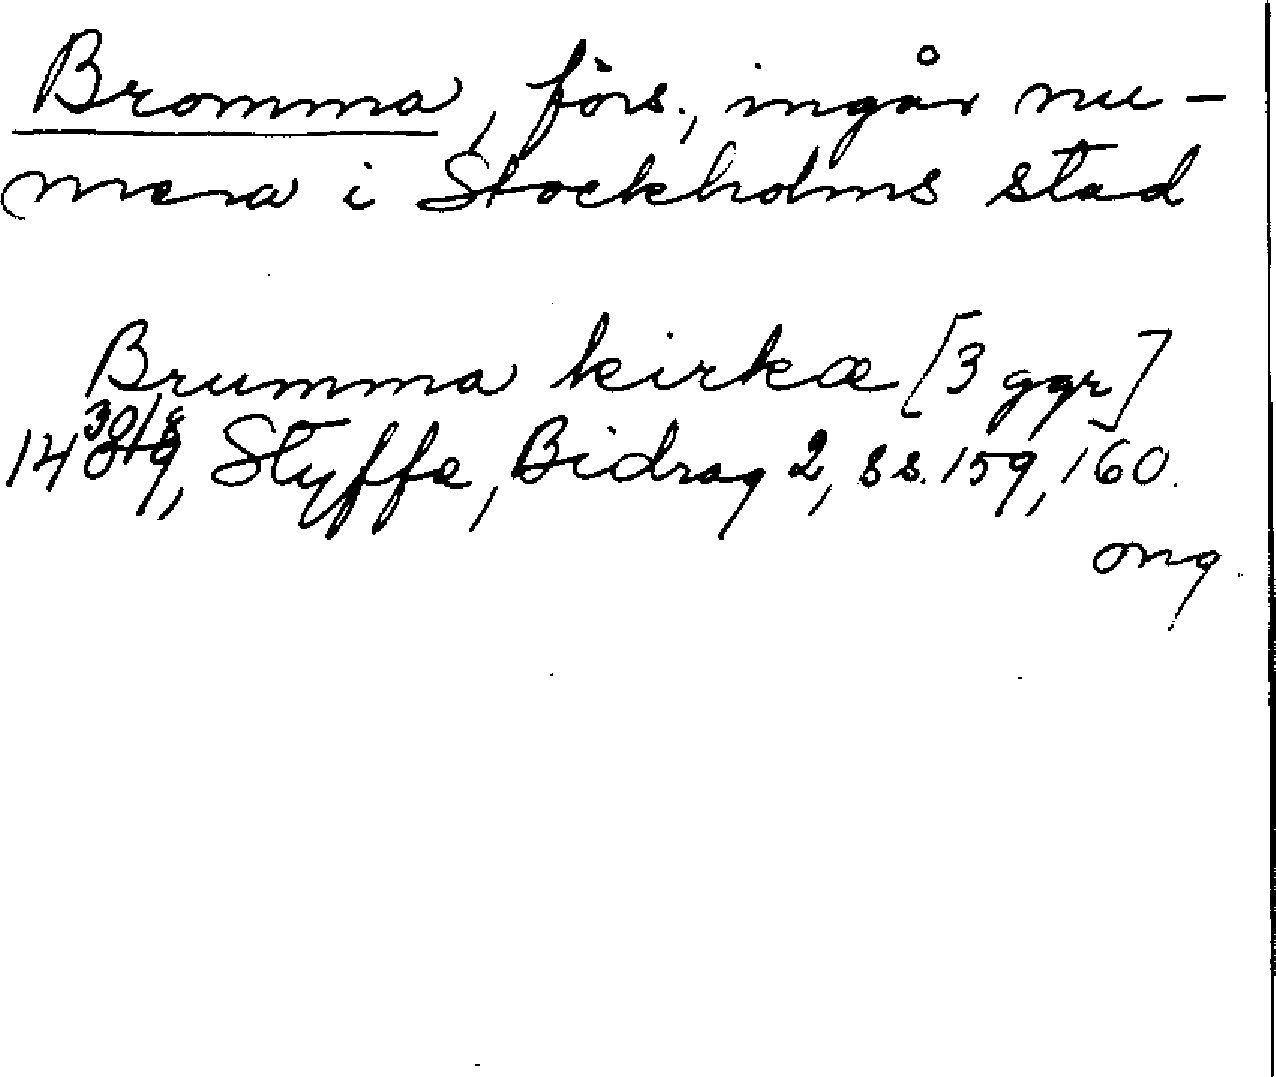 Bromma, förs., ingår nu-
mera i Stockholms stad
Brumma kirkæ [3 ggr]
14 30/8, Styffe, Bidrag 2, ss. 159, 160.
ong.